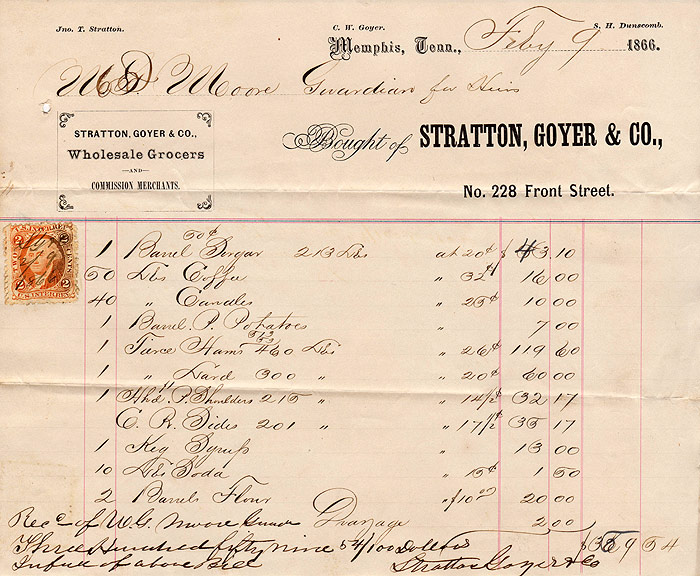 Jno. T. Stratton. C. W. Goyer. S. H. Dunscomb.
Memphis, Tenn., Feby 9 1866.
W. G. Moore Guardian for Heirs
STRATTON, GOYER & CO.,
Wholesale Grocers
—AND—
COMMISSION MERCHANTS.
Bought of STRATTON, GOYER & CO.,
No. 228 Front Street.
U.S. INTER. REV.
2 2
U.S. INTER. REV.
50¢
1 Barrel Sugar 213 Lbs at 20¢ $ 43.10
50 Lbs Coffee " 32¢ 16 00
40 " Candles " 25¢ 10 00
1 Barrel P. Potatoes 7 00
513
53
1 Tierce Hams 460 Lbs " 26¢ 119 60
1 " Lard 300 " " 20¢ 60 00
1 Hhd. P. Shoulders 215 " " 14½¢ 32 17
C. R. Sides 201 " " 17½¢ 35 17
1 Keg Syrup 13 00
10 Lbs Soda " 15¢ 1 50
2 Barrels Flour " $10.00 20 00
Drayage 2 00
Recd of W.G. Moore
Three Hundred fifty nine 54/100 Dollars $ 359 54
In full of above Bill Stratton Goyer & Co